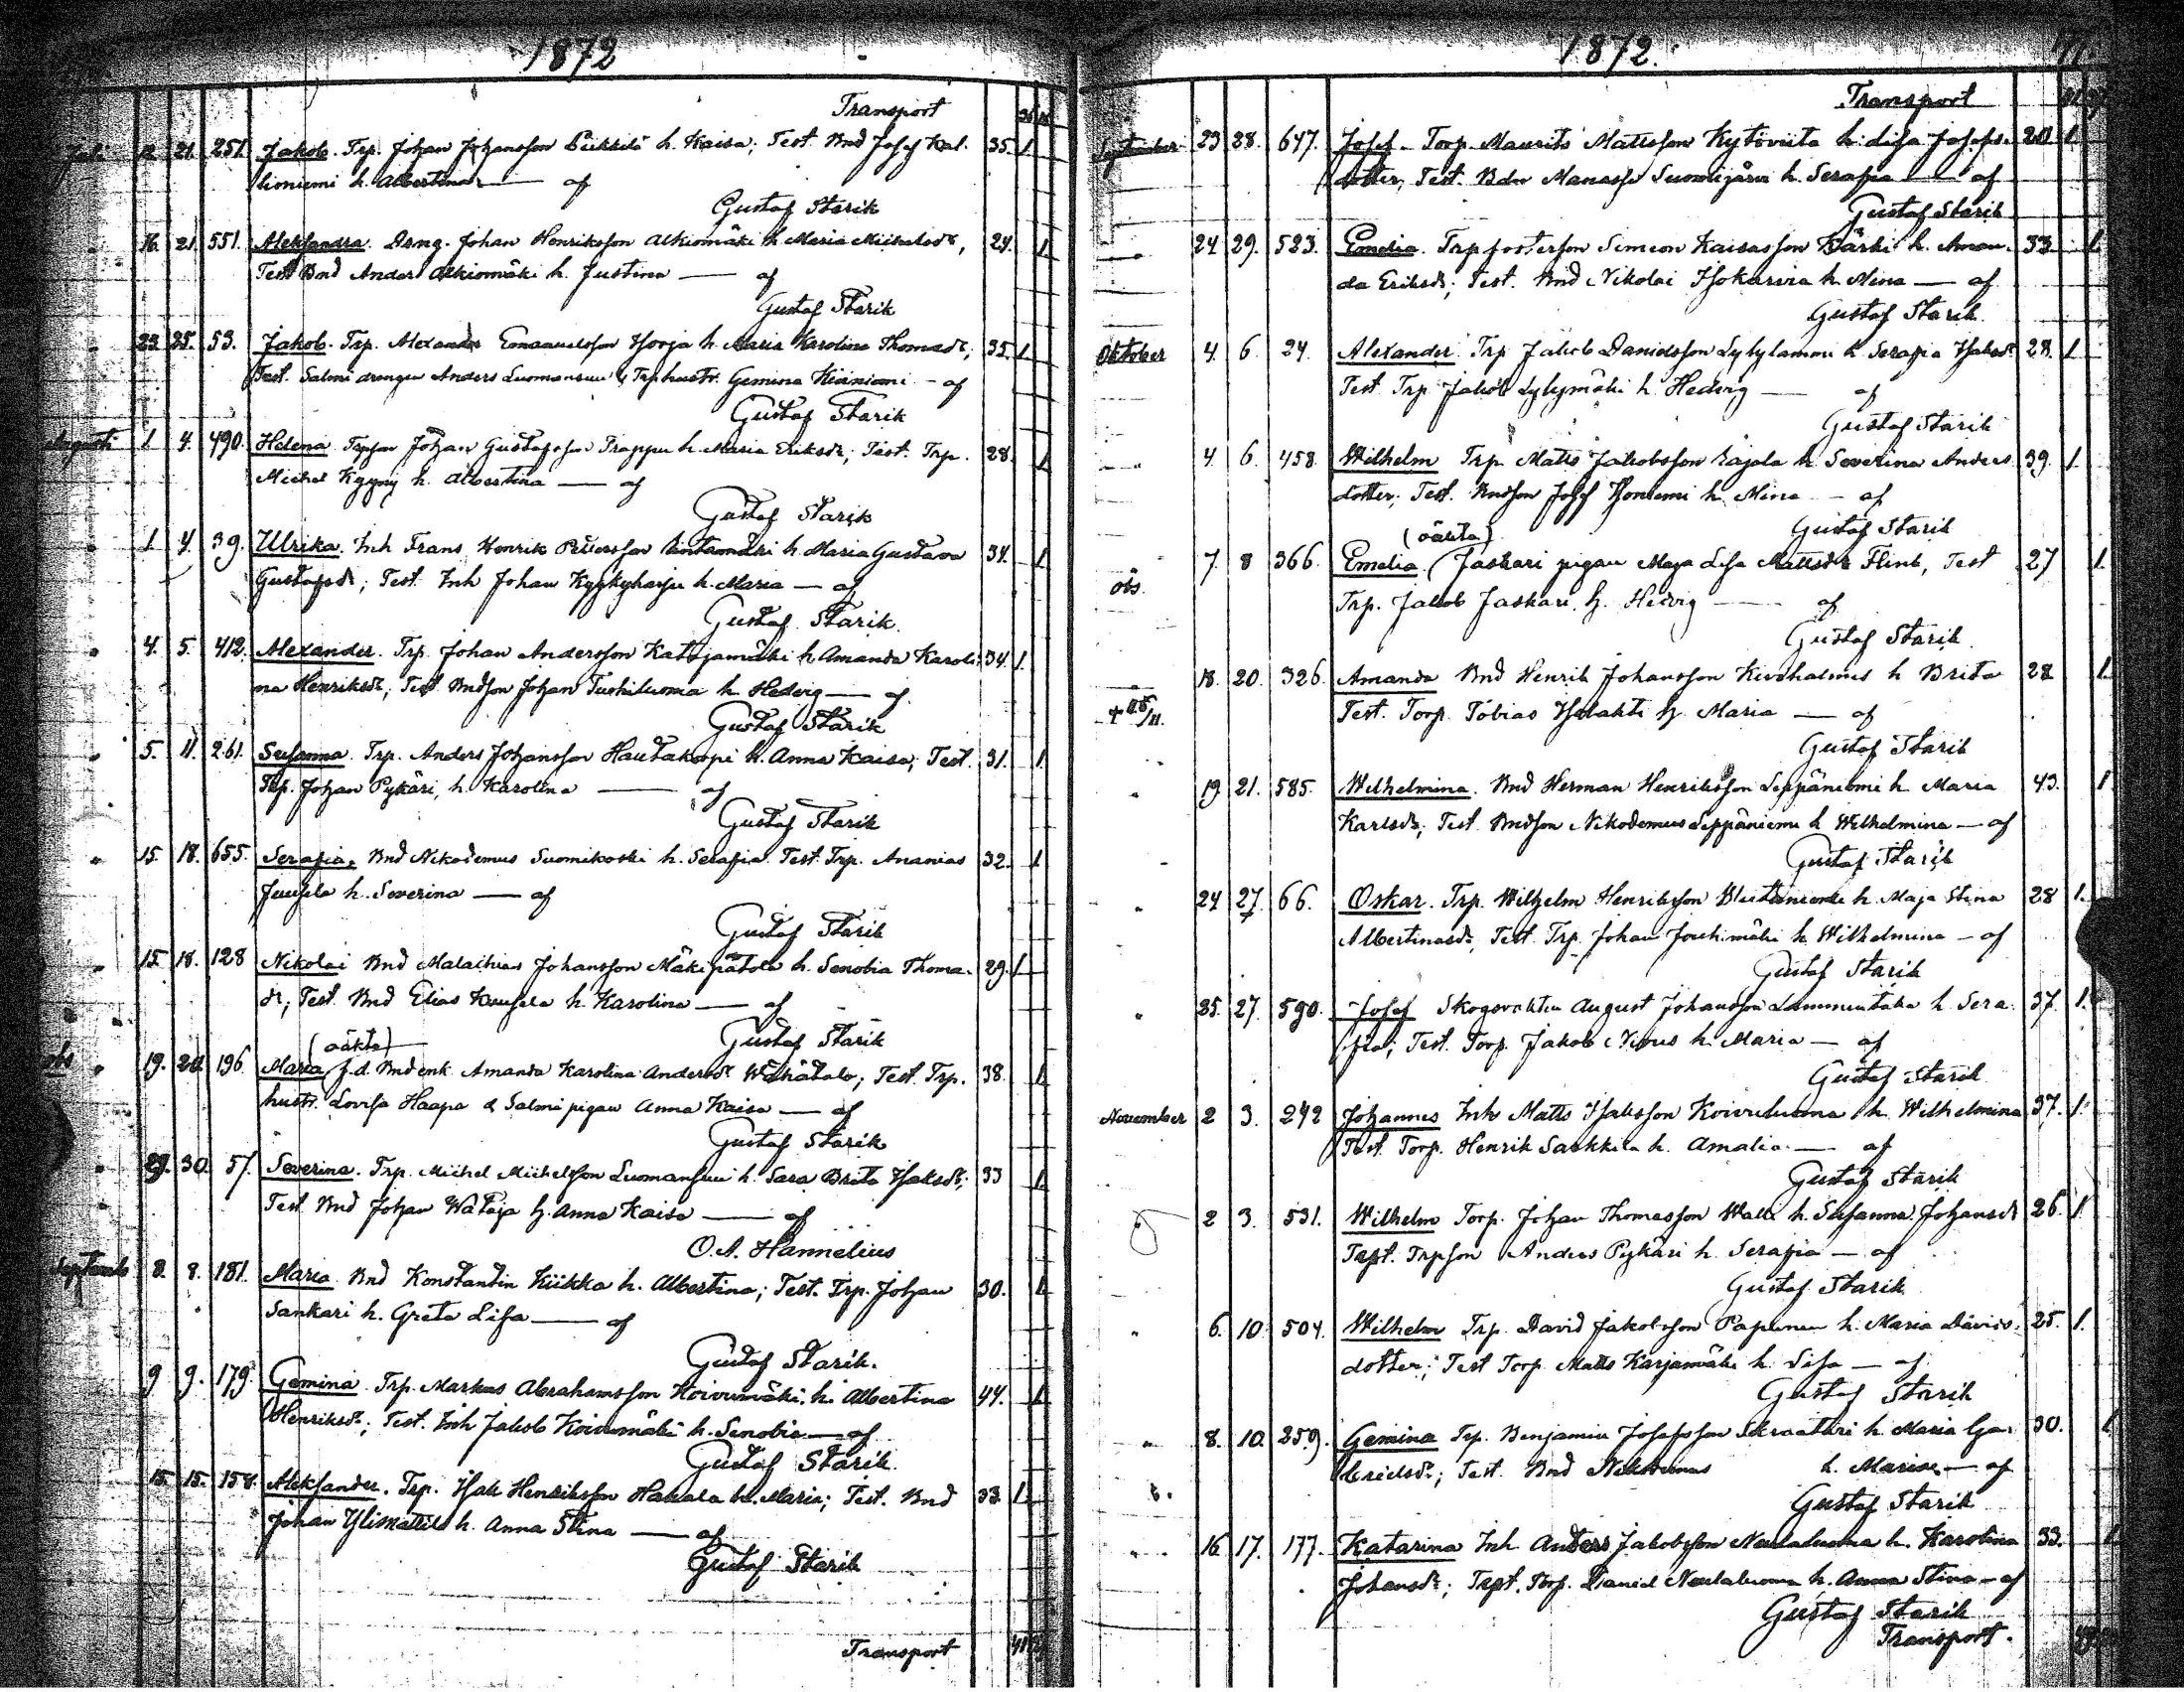 1872
Transport
Juli 12. 21. 251. Jakob. Trp. Johan Johansson h. Kaisa; Test. Bnd Josef Kal- 35. 1
lioniemi h. Albertina — af
Gustaf Starik
" 16. 21. 551. Aleksandra. Dräng. Johan Henriksson Alkiomäki h. Maria Michelsdr, 24. 1
Test Bnd Anders Alkiomäki h. Justina — af
Gustaf Starik
" 23. 25. 53. Jakob. Trp. Alexander Emanuelsson Harja h. Maria Karolina Thomasdr; 35. 1
Test. Salmi drängen Anders Luomansuu & Trp.hustr. Gemina Kiviniemi - af
Gustaf Starik
Augusti 1. 4. 490. Helena. Trpson Johan Gustafsson Trappu h. Maria Eriksdr; Test. Trp. 28. 1
Michel Kyyny h. Albertina — af
Gustaf Starik
" 1. 4. 39. Ulrika. Inh Frans Henrik Pettersson h. Maria Gustava 34. 1
Gustafsdr; Test. Inh Johan Kyrkyharju h. Maria — af
Gustaf Starik
" 4. 5. 412. Alexander. Trp. Johan Andersson Katajamäki h. Amanda Karoli- 34. 1
na Henriksdr; Test Bndson Johan Tuohiluoma h. Hedvig — af
Gustaf Starik
" 5. 11. 261. Susanna. Trp. Anders Johansson Hautakorpi h. Anna Kaisa; Test. 31. 1
Trp. Johan Pykäri, h. Karolina — af
Gustaf Starik
" 15. 18. 655. Serafia. Bnd Nikodemus Suomikoski h. Serafia. Test. Trp. Ananias 32. 1
Juusela h. Severina — af
Gustaf Starik
" 15. 18. 128 Nikolai Bnd Malachias Johansson Mäkipätola h. Senobia Thoma- 29. 1
dr; Test. Bnd Elias h. Karolina — af
Gustaf Starik
(oäkta)
obs " 19. 20. 196. Maria f.d. Bndenk. Amanda Karolina Andersdr Wähätalo; Test. Trp. 38. 1
hustr. Lovisa Haapa & Salmi pigan Anna Kaisa — af
Gustaf Starik
" 29. 30. 57. Severina. Trp. Michel Michelsson Luomansuu h. Sara Brita Isaksdr; 33 1
Test. Bnd Johan Wataja h. Anna Kaisa — af
O.A. Hannelius
September 8. 8. 181. Maria. Bnd Konstantin Kiikka h. Albertina; Test. Trp. Johan 30. 1
Sankari h. Greta Lisa — af
Gustaf Starik.
9 9. 179. Gemina. Trp. Markus Abrahamsson Koivumäki h. Albertina 44. 1
Henriksdr; Test. Inh Jakob Koivumäki h. Senobia — af
Gustaf Starik.
15. 15. 158. Aleksander. Trp. Isak Henriksson Hakala h. Maria; Test. Bnd 33. 1
Johan Ylimattila h. Anna Stina — af
Gustaf Starik
Transport
1872.
Transport
September 23 28. 647. Josef. Torp. Maurits Mattsson Kytöviita h. Lisa Josefs- 20. 1.
dotter, Test. Bdn Manasse Suomijärvi h. Serafia — af
Gustaf Starik
" 24 29. 523. Trp.fosterson Simeon Kaisasson Kärki h. Aman- 33. 1.
da Eriksdr; Test. Bnd Nikolai Isokarvia h. Mina — af
Gustaf Starik.
Oktober 4. 6. 24. Alexander. Trp. Jakob Danielsson Lylylammi h. Serafia Isaksdr 28. 1
Test Trp Jakob Lylymäki h. Hedvig — af
Gustaf Starik
" 4. 6. 458. Wilhelm Trp. Matts Jakobsson Rajala h. Severina Anders 39. 1.
dotter; Test. Bndson Josef h. Mina — af
Gustaf Starik
(oäkta)
obs. 7. 8 366. Emelia Jaskari pigan Maja Lisa Mattsdr Flink, Test 27 1.
Trp. Jakob Jaskari h. Hedvig — af
Gustaf Starik.
" 18. 20. 326. Amanda Bnd Henrik Johansson Kivihalmes h Brita 28 1.
Test. Torp. Tobias Isolahti h. Maria — af
Gustaf Starik
" 19 21. 585. Wilhelmina. Bnd Herman Henriksson Leppäniemi h. Maria 43. 1
Karlsdr; Test. Bndson Nikodemus Leppäniemi h. Wilhelmina — af
Gustaf Starik
" 24 27. 66. Oskar. Trp. Wilhelm Henriksson h. Maja Stina 28 1.
Albertinasdr, Test. Trp. Johan Jouhimäki h. Wilhelmina — af
Gustaf Starik
" 25. 27. 590. Josef Skogsvakten August Johansson Lammintaka h Sera- 37. 1.
fia; Test. Torp. Jakob Nivus h. Maria — af
Gustaf Starik
November 2 3. 242 Johannes Inh Matts Isaksson Koiviluoma h. Wilhelmina 37. 1.
Test. Torp. Henrik Sarkkila h. Amalia — af
Gustaf Starik
2 3. 531. Wilhelm Torp. Johan Thomasson Walli h. Susanna Johansdr 26. 1.
Test. Trpson Anders Pykäri h. Serafia — af
Gustaf Starik
" 6. 10. 504. Wilhelm Trp. David Jakobsson Papunen h. Maria Davids- 25. 1.
dotter; Test Torp. Matts Karjamäki h. Lisa — af
Gustaf Starik
" 8. 10. 259. Gemina Trp. Benjamin Josefsson Skraatari h. Maria Ga- 30. 1
brielsdr; Test. Bnd Nikodemus h. Maria — af
Gustaf Starik
" 16. 17. 177. Katarina Inh Anders Jakobsson Neulaluoma h. Karolina 33. 1
Johansdr; Test. Torp. Daniel Neulaluoma h. Anna Stina — af
Gustaf Starik
Transport.